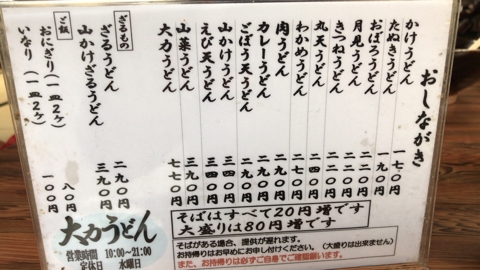 おしながき
かけうどん 一七〇円
たぬきうどん 一九〇円
おぼろうどん
月見うどん 二二〇円
きつねうどん 二二〇円
丸天うどん
わかめうどん
肉うどん
カレーうどん
ごぼう天うどん
山かけうどん 三四〇円
えび天うどん 三四〇円
山菜うどん 三九〇円
大力うどん 七七〇円
ざるもの
ざるうどん 二九〇円
山かけざるうどん 三九〇円
ご飯
おにぎり(一皿2ヶ) 八〇円
いなり(一皿2ヶ) 一〇〇円
そばはすべて20円増です
大盛りは80円増です
そばがある場合、提供が遅れます。
お持帰りはお早めにお申し付けください。(大盛りは出来ません)
また、お持帰りは必ずご自身でご確認願います。
大力うどん
営業時間 10:00〜21:00
定休日 水曜日